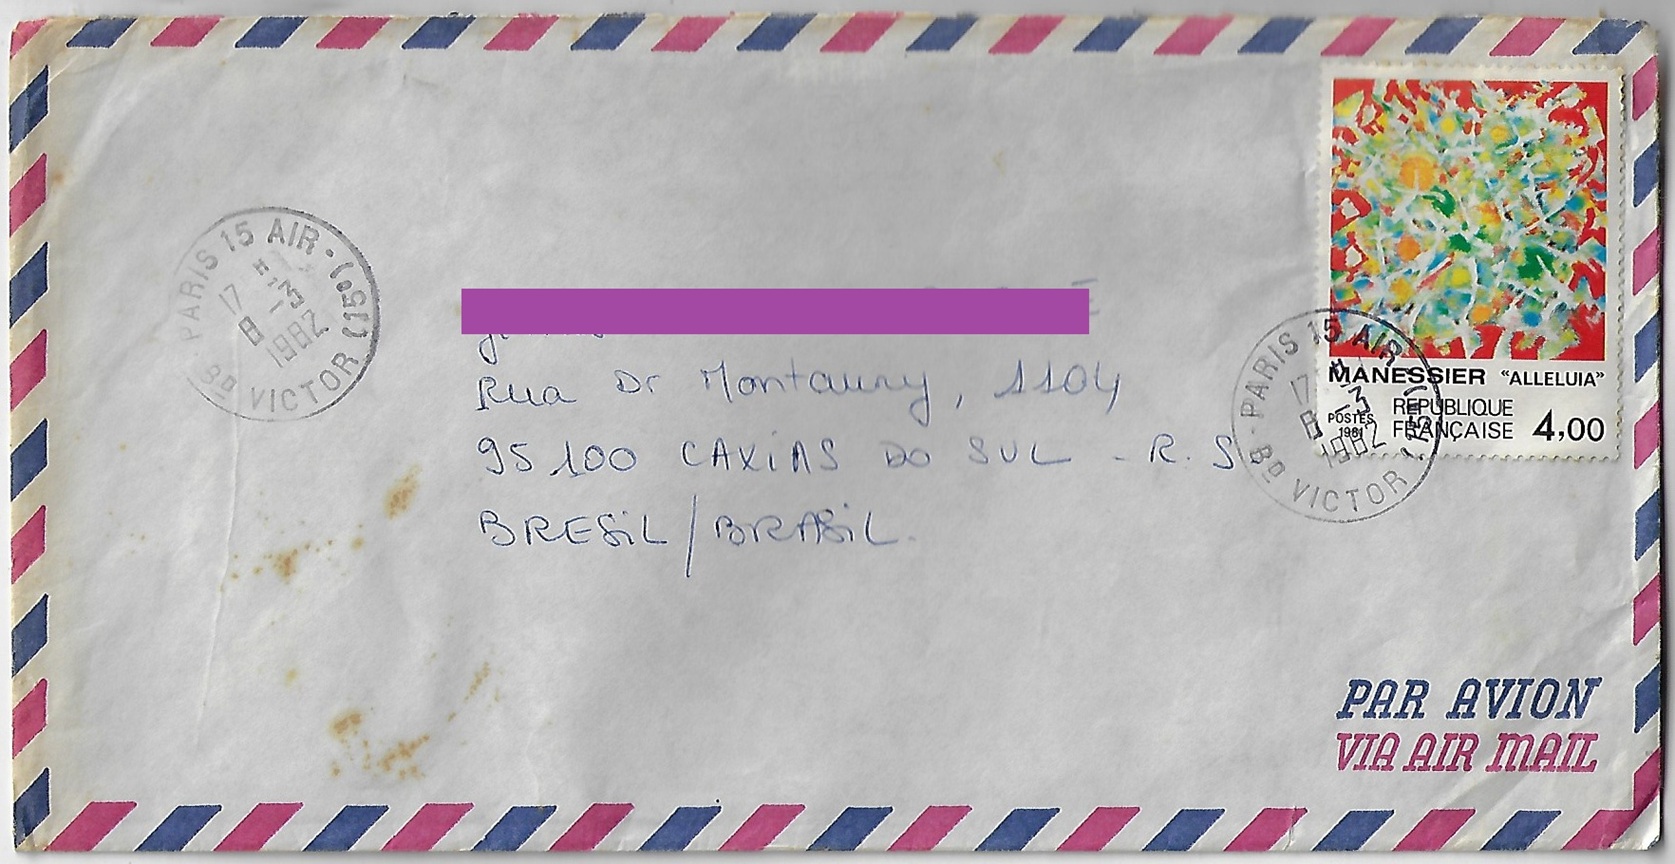 PARIS 15 AIR - (15e)
17 H
8 - 3
1982
Bd VICTOR
MANESSIER "ALLELUIA"
POSTES
1981
REPUBLIQUE
FRANÇAISE
4,00
PARIS 15 AIR - (15e)
17 H
8 - 3
1982
Bd VICTOR
Rua Dr Montaury, 1104
95100 CAXIAS DO SUL - R. S.
BRESIL / BRASIL.
PAR AVION
VIA AIR MAIL